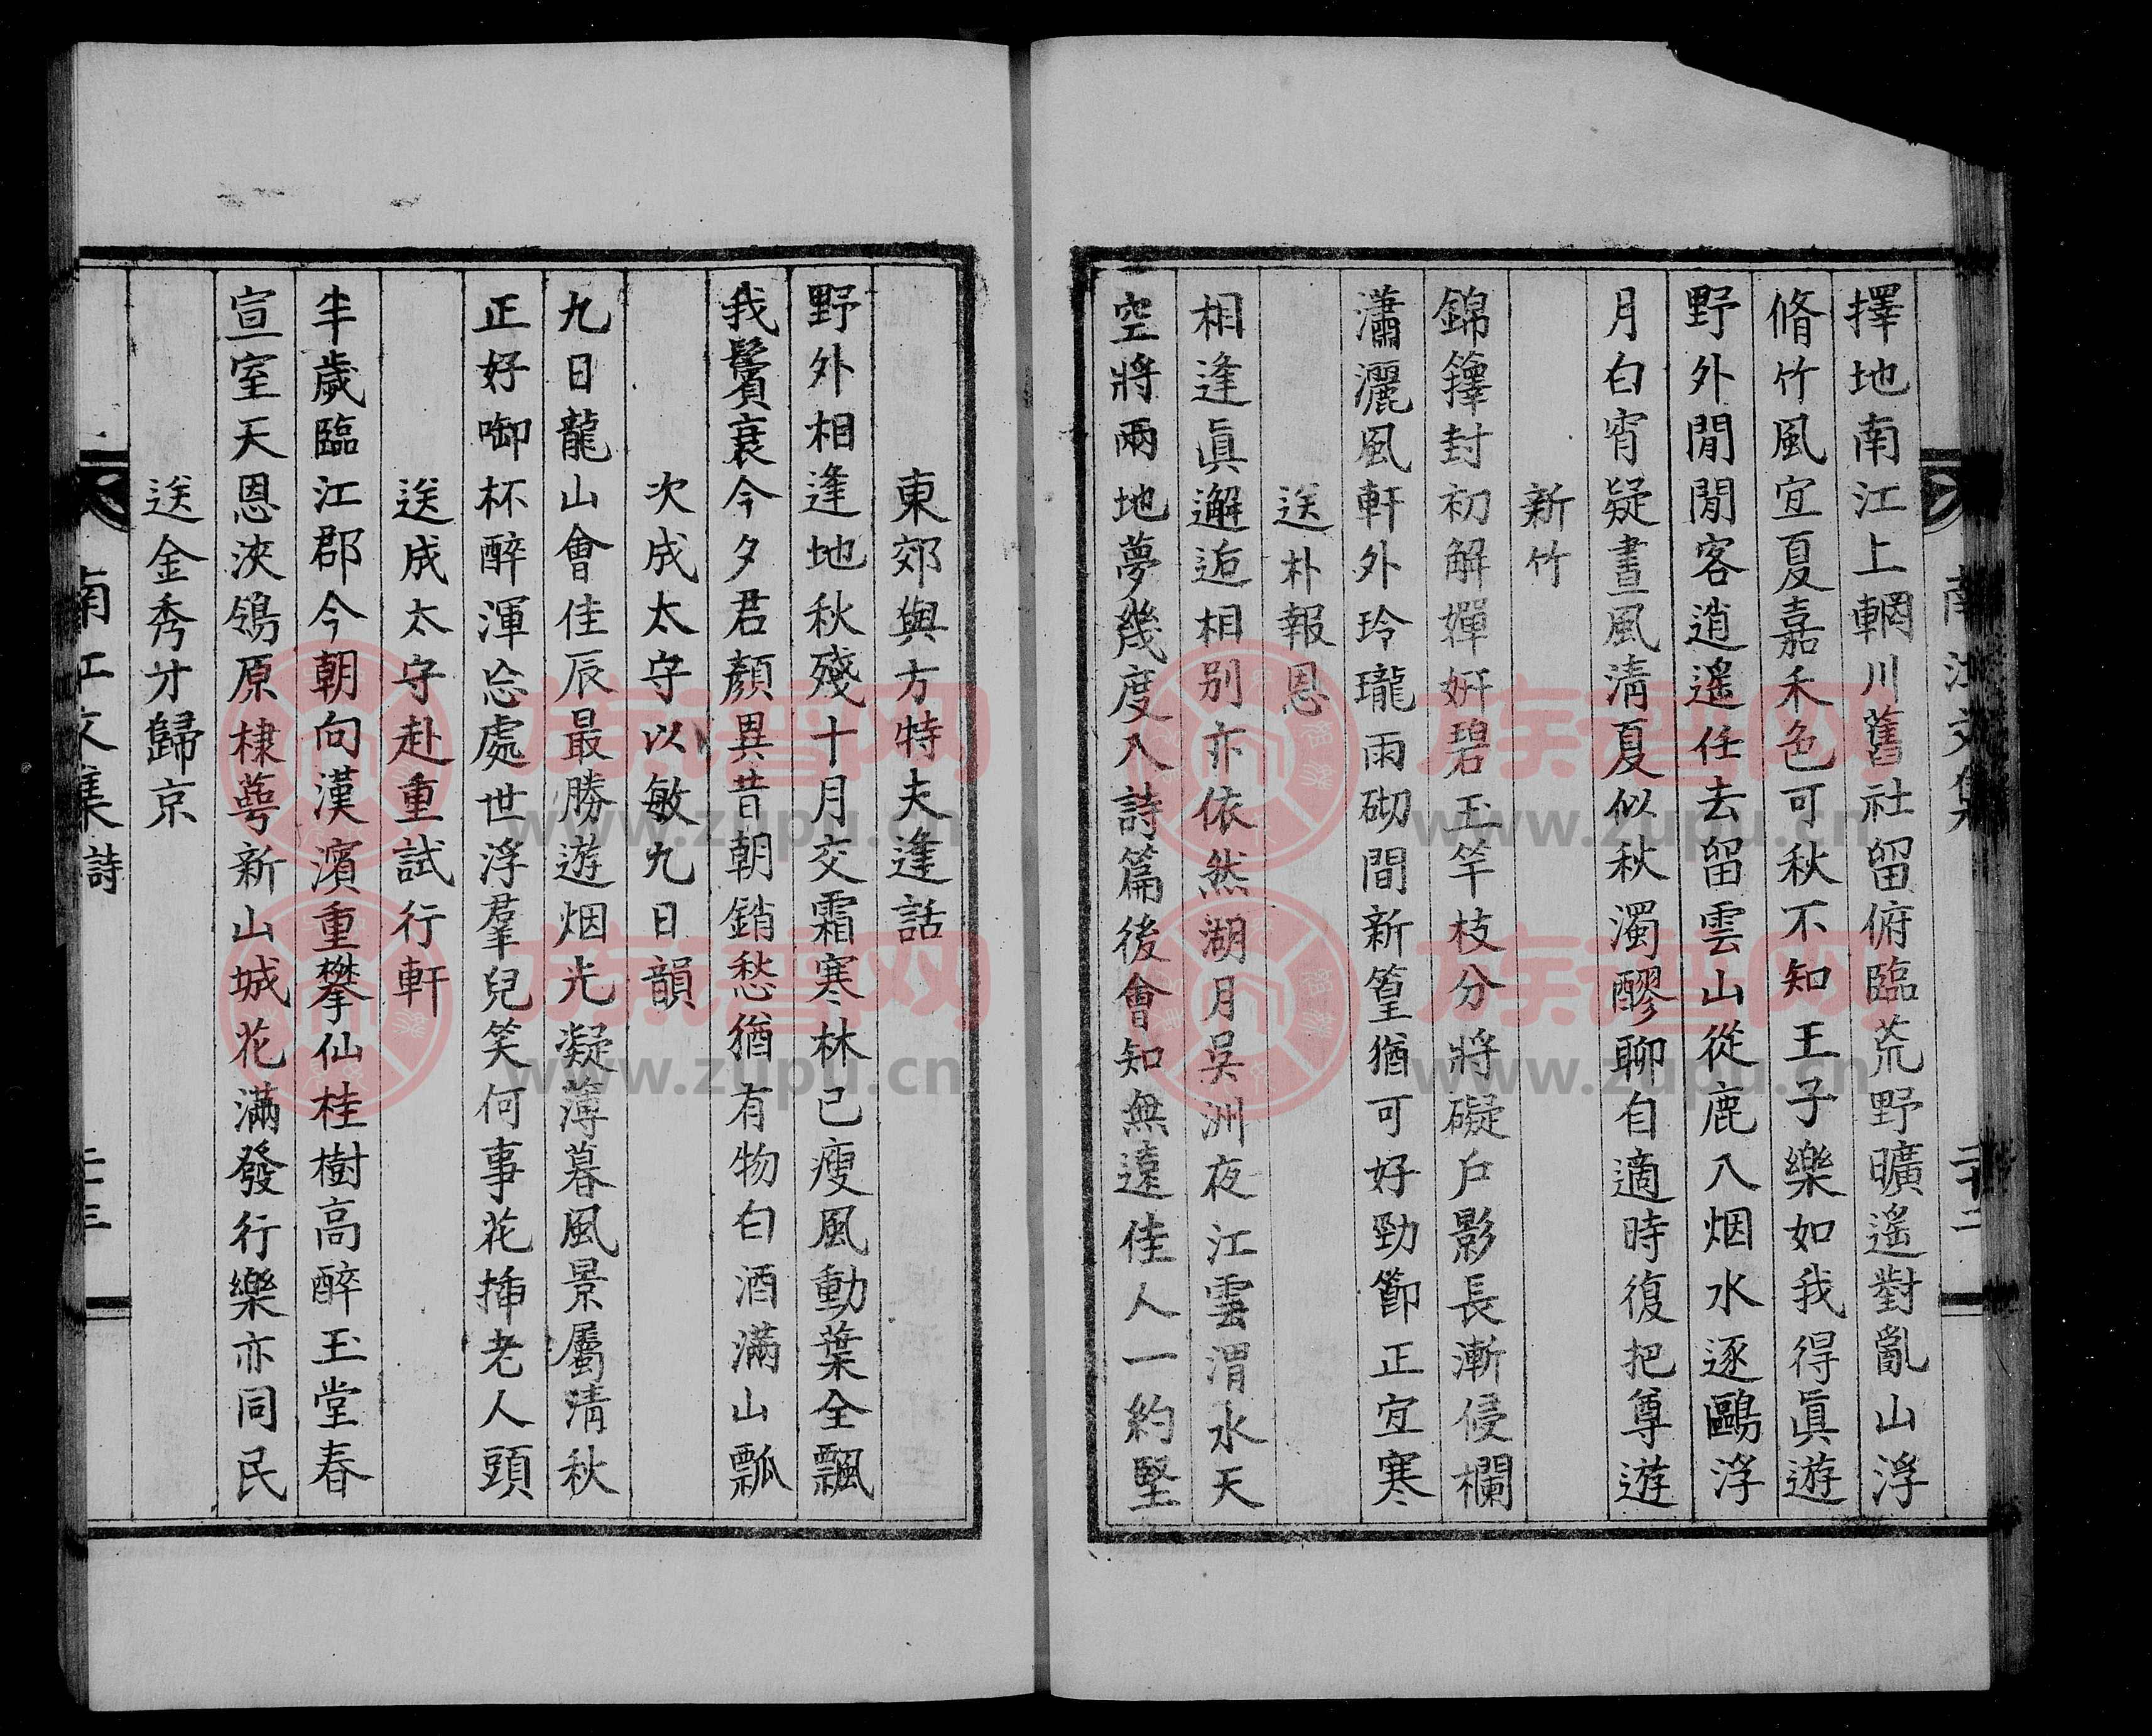 南江文集
擇地南江上輞川舊社留俯臨荒野曠遙對亂山浮
脩竹風宜夏嘉禾色可秋不知王子樂如我得眞遊
野外閒閒客逍遙任去留雲山從鹿入烟水逐鷗浮
月白宵疑晝風淸夏似秋濁醪聊自適時復把尊遊
新竹
錦籜封初解嬋姸碧玉竿枝分將礙戶影長漸侵欄
瀟灑風軒外玲瓏雨砌間新篁猶可好勁節正宜寒
送朴報恩
相逢眞邂逅相別亦依然湖月吳洲夜江雲渭水天
空將兩地夢幾度入詩篇後會知無遠佳人一約堅
東郊與方特夫逢話
野外相逢地秋殘十月交霜寒林已瘦風動葉全飄
我鬢衰今夕君顏異昔朝銷愁猶有物白酒滿山瓢
次成太守以敏九日韻
九日龍山會佳辰最勝遊烟光凝薄暮風景屬淸秋
正好啣杯醉渾忘處世浮羣兒笑何事花揷老人頭
送成太守赴重試行軒
半歲臨江郡今朝向漢濱重攀仙桂樹高醉玉堂春
宣室天恩浹鴒原棣萼新山城花滿發行樂亦同民
送金秀才歸京
南江文集 詩
族谱网
www.zupu.cn
族谱网
www.zupu.cn
族谱网
www.zupu.cn
族谱网
www.zupu.cn